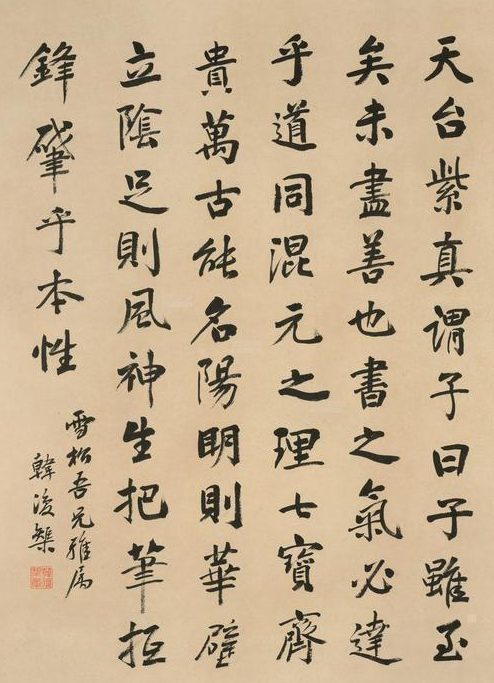 天台紫真謂子曰子雖至
矣未盡善也書之氣必達
乎道同混元之理七寶齊
貴萬古能名陽明則華壁
立陰足則風神生把筆抵
鋒肇乎本性
雪松吾兄雅属
韓浚